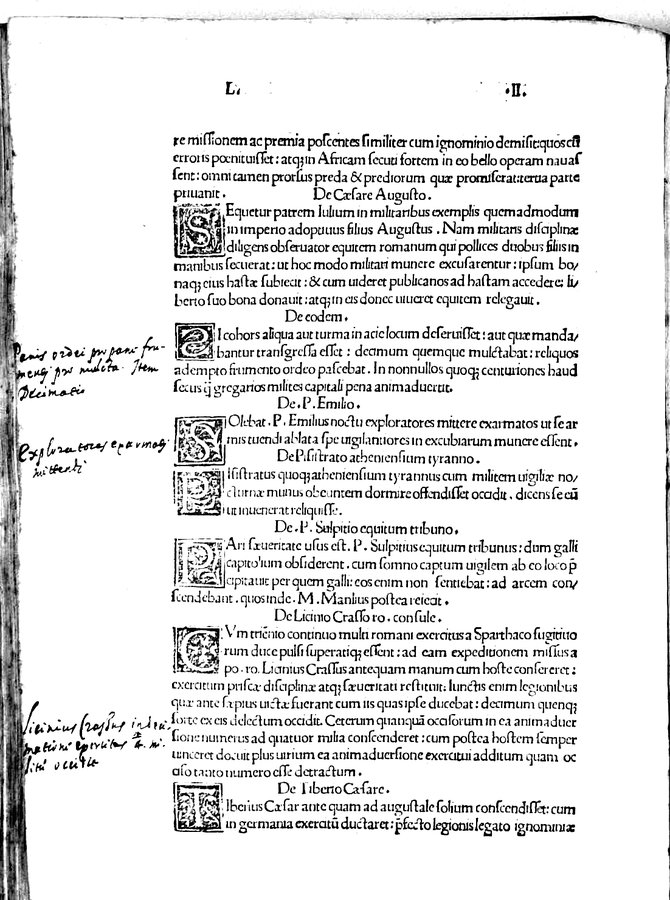 L. .II.
re missionem ac premia poscentes similiter cum ignominio demisit:quos cũ
erroris pœnituisset: atq; in Africam secuti fortem in eo bello operam nauas
sent: omni tamen prorsus preda & prediorum quæ promiserat:tertia parte
priuauit.
De Cæsare Augusto.
SEquetur patrem Iulium in militaribus exemplis quemadmodum
in imperio adoptiuus filius Augustus. Nam militaris disciplinæ
diligens obseruator equitem romanum qui pollices duobus filiis in
manibus secuerat: ut hoc modo militari munere excusarentur: ipsum bo/
naq; eius hastæ subiecit: & cum uideret publicanos ad hastam accedere: li/
berto suo bona donauit: atq; in eis donec uiueret equitem relegauit.
De eodem.
SI cohors aliqua aut turma in acie locum deseruisset: aut quæ manda/
bantur transgressa esset: decimum quemque mulctabat: reliquos
adempto frumento ordeo pascebat. In nonnullos quoq; centuriones haud
secus q̃ gregarios milites capitali pena animaduertit.
De .P. Emilio.
SOlebat .P. Emilius noctu exploratores mittere exarmatos ut se ar
mis tuendi ablata spe uigilantiores in excubiarum munere essent.
De Pisistrato atheniensium tyranno.
PIsistratus quoq; atheniensium tyrannus cum militem uigiliæ no/
cturnæ munus obeuntem dormire offendisset occidit, dicens se eũ
ut inuenerat reliquisse.
De .P. Sulpitio equitum tribuno.
PAri sæueritate usus est .P. Sulpitius equitum tribunus: dum galli
capitolium obsiderent, cum somno captum uigilem ab eo loco p̃
cipitauit per quem galli: eos enim non sentiebat: ad arcem con/
scendebant, quos inde .M. Manlius postea reiecit.
De Licinio Crasso ro. consule.
CVm triẽnio continuo multi romani exercitus a Sparthaco fugitiuo
rum duce pulsi superatiq; essent: ad eam expeditionem missus a
po. ro. Licinius Crassus antequam manum cum hoste consereret:
exercitum priscæ disciplinæ atq; sæueritati restituit: Iunctis enim legionibus
quæ ante sæpius uictæ fuerant cum iis quas ipse ducebat: decimum quenq;
sorte ex eis delectum occidit. Ceterum quanquã occisorum in ea animaduer
sione numerus ad quatuor milia conscenderet: cum postea hostem semper
uinceret docuit plus uirium ea animaduersione exercitui additum quam oc
ciso tanto numero esse detractum.
De Tiberio Cæsare.
TIberius Cæsar ante quam ad augustale solium conscendisset: cum
in germania exercitũ ductaret: p̃fecto legionis legato ignominiæ
Panis ordei pro pane fru-
menti pro multa. Item
Decimatio
Exploratores exarmati
mittendi
Licinius Crassus in
occidit